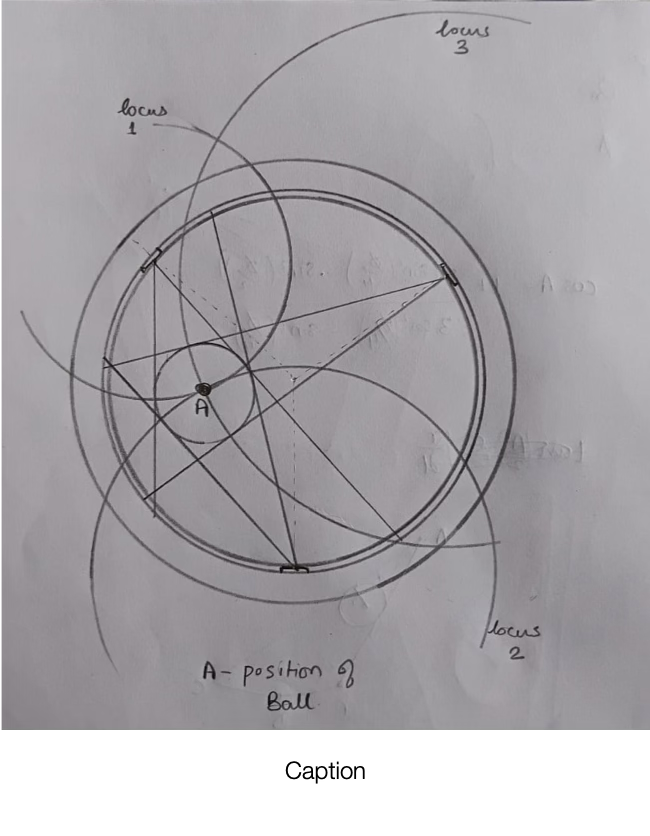 locus
3
locus
1
A
locus
2
A- position of
Ball
Caption